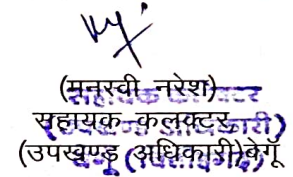 (मनस्वी नरेश)
सहायक कलक्टर
(उपखण्ड अधिकारी)बेगूॅं